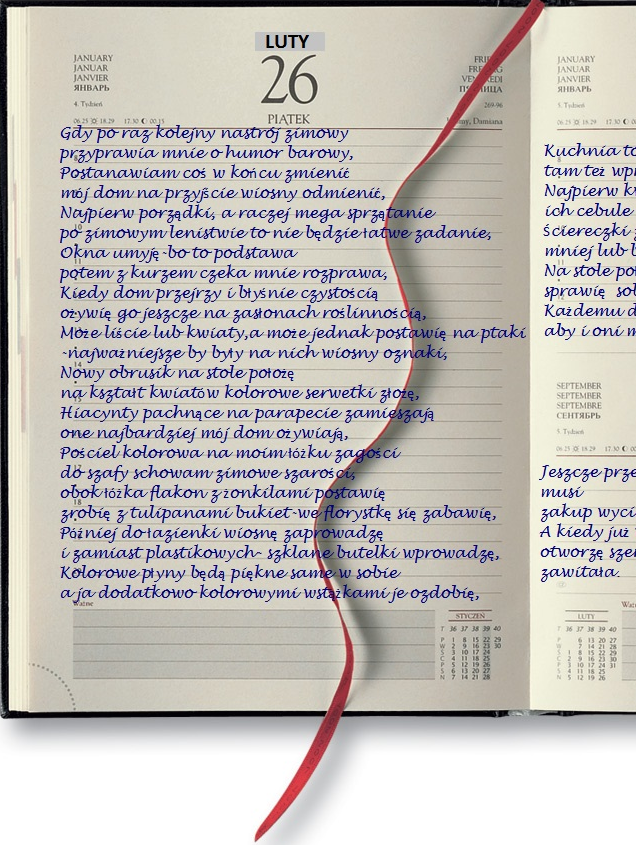 LUTY
26
PIĄTEK
JANUARY
JANUAR
JANVIER
ЯНВАРЬ
4. Tydzień
06.25 18.29 17.30 00.15
269-96
Gdy po raz kolejny nastrój zimowy
przyprawia mnie o humor barowy,
Postanawiam coś w końcu zmienić
mój dom na przyjście wiosny odmienić,
Najpierw porządki, a raczej mega sprzątanie
po zimowym lenistwie to nie będzie łatwe zadanie,
Okna umyję -bo to podstawa
potem z kurzem czeka mnie rozprawa,
Kiedy dom przejrzy i błyśnie czystością
ożywię go jeszcze na zasłonach roślinnością,
Może liście lub kwiaty,a może jednak postawię na ptaki
-najważniejsze by były na nich wiosny oznaki,
Nowy obrusik na stole położę
na kształt kwiatów kolorowe serwetki złożę,
Hiacynty pachnące na parapecie zamieszają
one najbardziej mój dom ożywiają,
Pościel kolorowa na moim łóżku zagości
do szafy schowam zimowe szarości,
obok łóżka flakon z żonkilami postawię
zrobię z tulipanami bukiet-we florystkę się zabawię,
Później do łazienki wiosnę zaprowadzę
i zamiast plastikowych- szklane butelki wprowadzę,
Kolorowe płyny będą piękne same w sobie
a ja dodatkowo kolorowymi wstążkami je ozdobię,
Ważne
STYCZEŃ
T 36 37 38 39 40
P 1 8 15 22 29
W 2 9 16 23 30
S 3 10 17 24
C 4 11 18 25
P 5 12 19 26
S 6 13 20 27
N 7 14 21 28
JANUARY
JANUAR
JANVIER
ЯНВАРЬ
5. Tydzień
Kuchnia
tam też
Najpierw
ich cebule
ściereczki
mniej lub
Na stole
sprawię
Każdemu
aby i oni
SEPTEMBER
SEPTEMBER
SEPTEMBRE
СЕНТЯБРЬ
5. Tydzień
Jeszcze
musi
zakup
A kiedy już
otworzę
zawitała.
LUTY
T 36 37 38 39 40
P 6 13 20 27